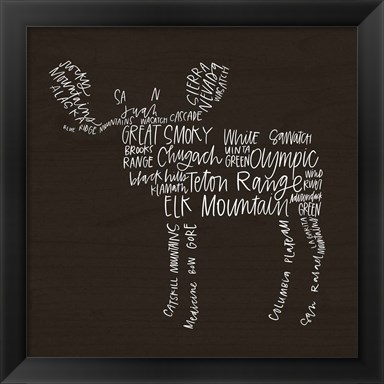 Rocky
Mountains
ALASKA
SIERRA
NEVADA
WASATCH
SA N
Juan
BLUE RIDGE MOUNTAINS WASATCH CASCADE
GREAT SMOKY White SAWATCH
BROOKS
RANGE Chugach UINTA
GREEN Olympic
black hills
KLAMATH Teton Range WIND
RIVER
ELK Mountain Adirondack
GREEN
LA GARITA
MOUNTAINS
CATSKILL MOUNTAINS
Medicine BOW GORE
COLUMBIA PLATEAU
San Rafael